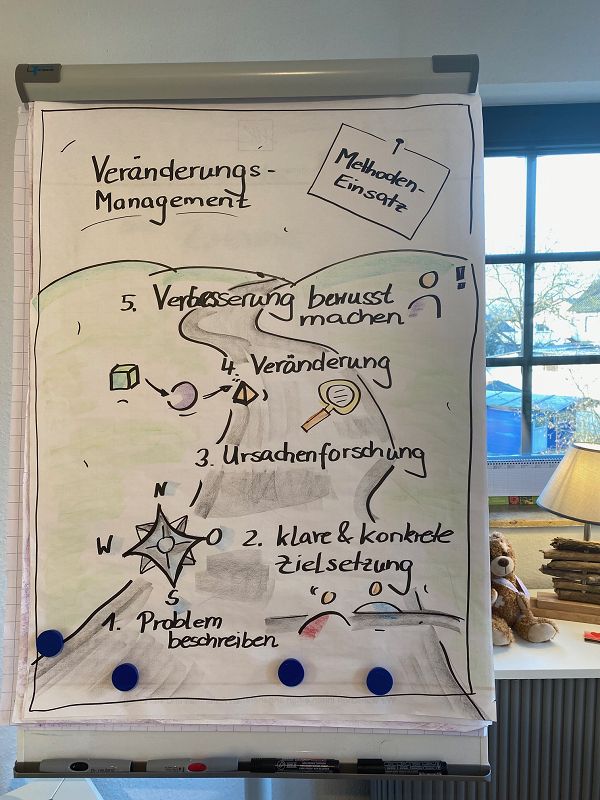 Veränderungs-
Management
Methoden-
Einsatz
5. Verbesserung bewusst
machen
!
4. Veränderung
3. Ursachenforschung
N
W
O
S
2. klare & konkrete
Zielsetzung
1. Problem
beschreiben